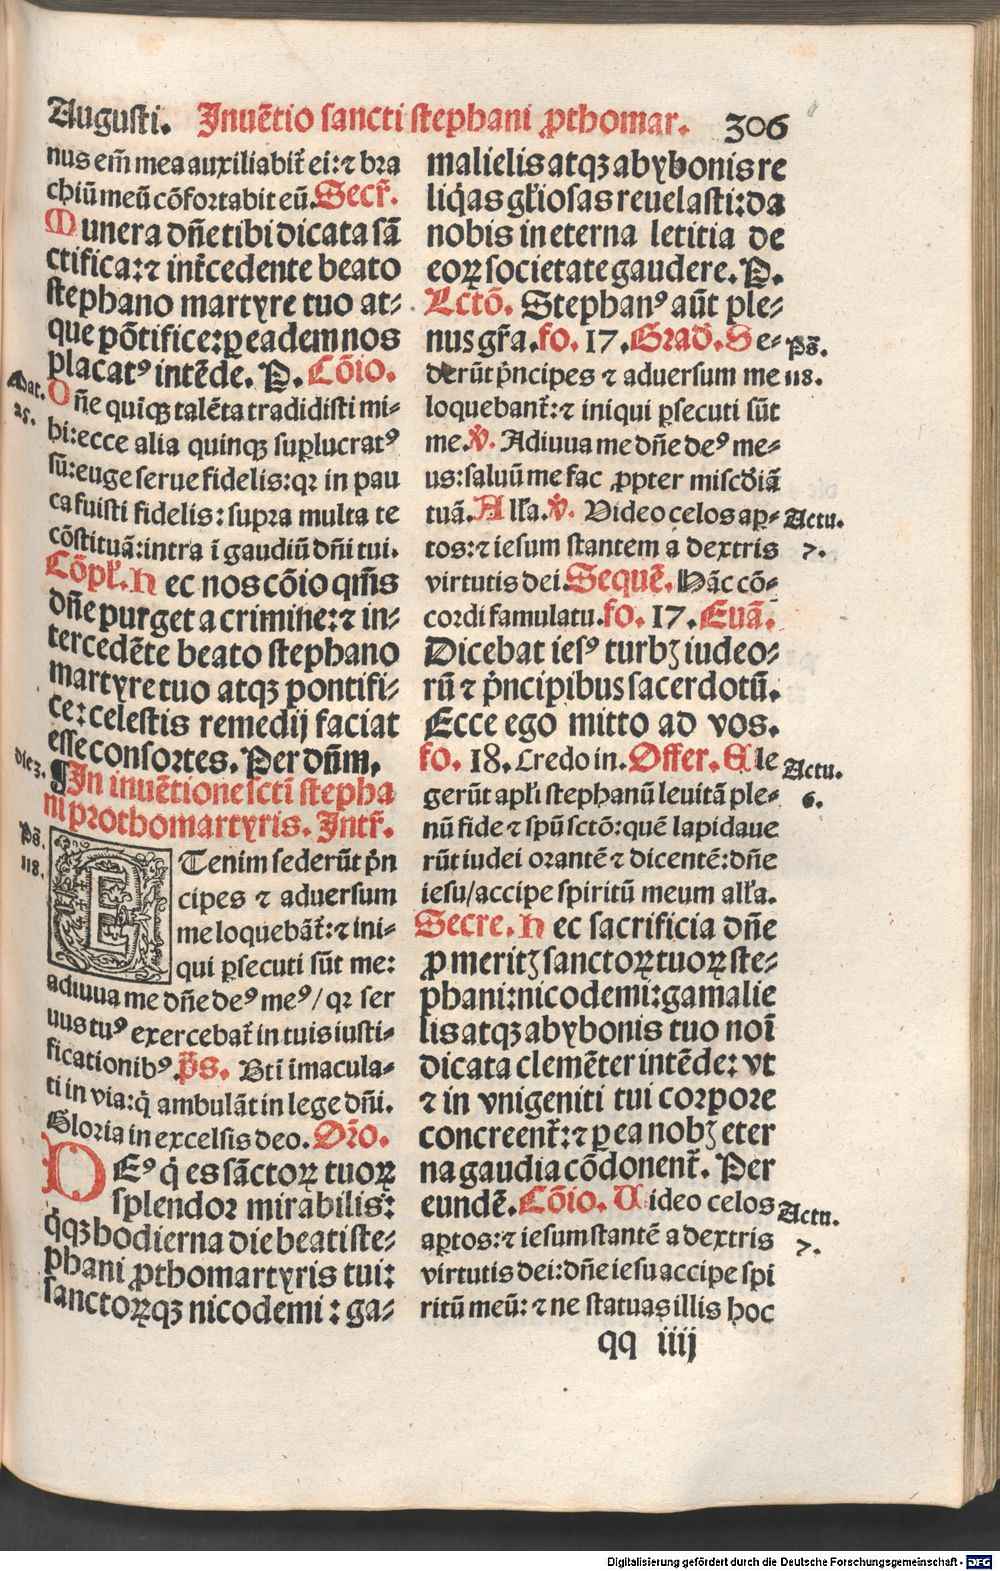 Augusti. Inuẽtio sancti stephani ꝓthomar. 306
nus em̃ mea auxiliabit̃ ei: ⁊ bra
chiũ meũ cõfortabit eũ. Secr̃.
Munera dñe tibi dicata sã
ctifica: ⁊ int̃cedente beato
stephano martyre tuo at⸗
que põtifice: ꝑ eadem nos
placatꝰ intẽde. P. Cõio.
Mat.
25.
Dñe quiqꝫ talẽta tradidisti mi⸗
hi: ecce alia quinqꝫ suꝑlucratꝰ
sũ: euge serue fidelis: qꝛ in pau
ca fuisti fidelis: supra multa te
cõstituã: intra ĩ gaudiũ dñi tui.
Cõpl̃. Hec nos cõio qm̃s
dñe purget a crimine: ⁊ in⸗
tercedẽte beato stephano
martyre tuo atqꝫ pontifi⸗
ce: celestis remedij faciat
esse consortes. Per dñm.
diez.
¶In inuẽtione scti stepha
ni prothomartyris. Intr̃.
Ps̃.
118.
ETenim sederũt pñ
cipes ⁊ aduersum
me loquebãt̃: ⁊ ini⸗
qui ꝑsecuti sũt me:
adiuua me dñe deꝰ meꝰ/ qꝛ ser
uus tuꝰ exercebat̃ in tuis iusti⸗
ficationibꝰ. ps̃. Bti imacula⸗
ti in via: q̃ ambulãt in lege dñi.
Gloria in excelsis deo. Or̃o.
DEꝰ q̃ es sãctoꝝ tuoꝝ
splendor mirabilis:
q̃qꝫ hodierna die beati ste⸗
phani ꝓthomartyris tui:
sanctoꝝqꝫ nicodemi: ga⸗
malielis atqꝫ abybonis re
liq̃as gl̃iosas reuelasti: da
nobis in eterna letitia de
eoꝝ societate gaudere. P.
Lctõ. Stephanꝰ aũt ple⸗
nus gr̃a. fo. 17. Grad̃. Se⸗
Ps̃.
118.
derũt pñcipes ⁊ aduersum me
loquebant̃: ⁊ iniqui ꝑsecuti sũt
me. ℣. Adiuua me dñe deꝰ me⸗
us: saluũ me fac ꝓpter misc̃diã
tuã. All̃a. ℣. Video celos aꝑ⸗
Actu.
7.
tos: ⁊ iesum stantem a dextris
virtutis dei. Sequẽ. Hãc cõ⸗
cordi famulatu. fo. 17. Euã.
Dicebat iesꝰ turbꝫ iudeo⸗
rũ ⁊ pñcipibus sacerdotũ.
Ecce ego mitto ad vos.
fo. 18. Credo in. Offer. Ele
Actu.
6.
gerũt apl̃i stephanũ leuitã ple⸗
nũ fide ⁊ spũ sctõ: quẽ lapidaue
rũt iudei orantẽ ⁊ dicentẽ: dñe
iesu/ accipe spiritũ meum all̃a.
Secre. Hec sacrificia dñe
ꝓ meritꝫ sanctoꝝ tuoꝝ ste⸗
phani: nicodemi: gamalie
lis atqꝫ abybonis tuo noĩ
dicata clemẽter intẽde: vt
⁊ in vnigeniti tui corpore
concreent̃: ⁊ ꝑ ea nobꝫ eter
na gaudia cõdonent̃. Per
eundẽ. Cõio. Video celos
Actu.
7.
aꝑtos: ⁊ iesum stantẽ a dextris
virtutis dei: dñe iesu accipe spi
ritũ meũ: ⁊ ne statuas illis hoc
qq iiij
Digitalisierung gefördert durch die Deutsche Forschungsgemeinschaft - DFG